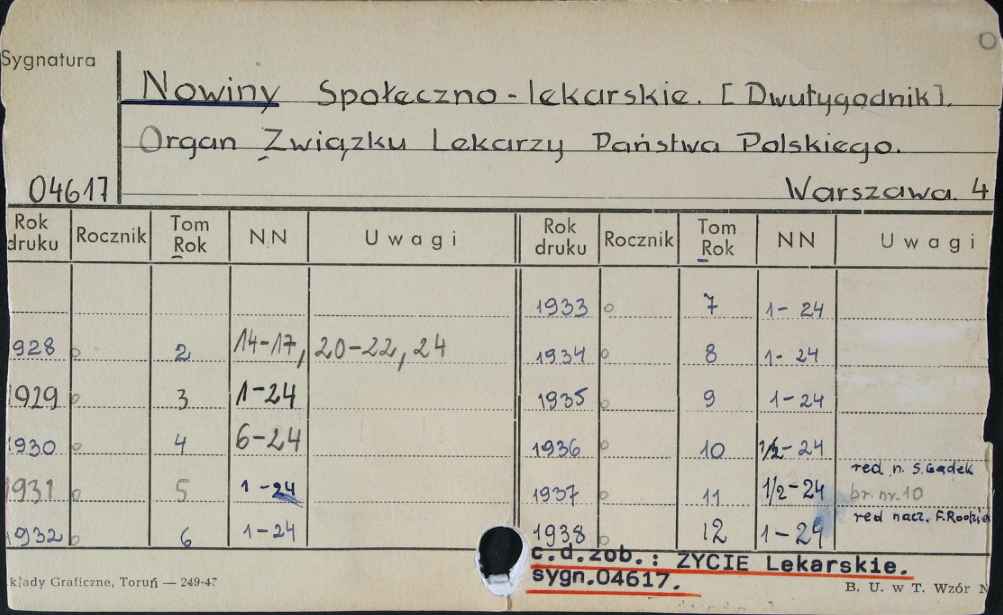 Sygnatura
Nowiny Społeczno-lekarskie. [Dwutygodnik].
Organ Związku Lekarzy Państwa Polskiego.
04617 Warszawa. 4
Rok druku Rocznik Tom Rok NN Uwagi Rok druku Rocznik Tom Rok NN Uwagi
1933 7 1-24
928 2 14-17, 20-22, 24 1934 8 1-24
1929 3 1-24 1935 9 1-24
1930 4 6-24 1936 10 1/2-24
red. n. S. Gądek
1931 5 1-24 1937 11 1/2-24 br. nr. 10
red nacz. F.
1932 6 1-24 1938 12 1-24
c.d.zob.: ZYCIE Lekarskie.
sygn.04617.
kłady Graficzne, Toruń — 249-47 B. U. w T. Wzór N